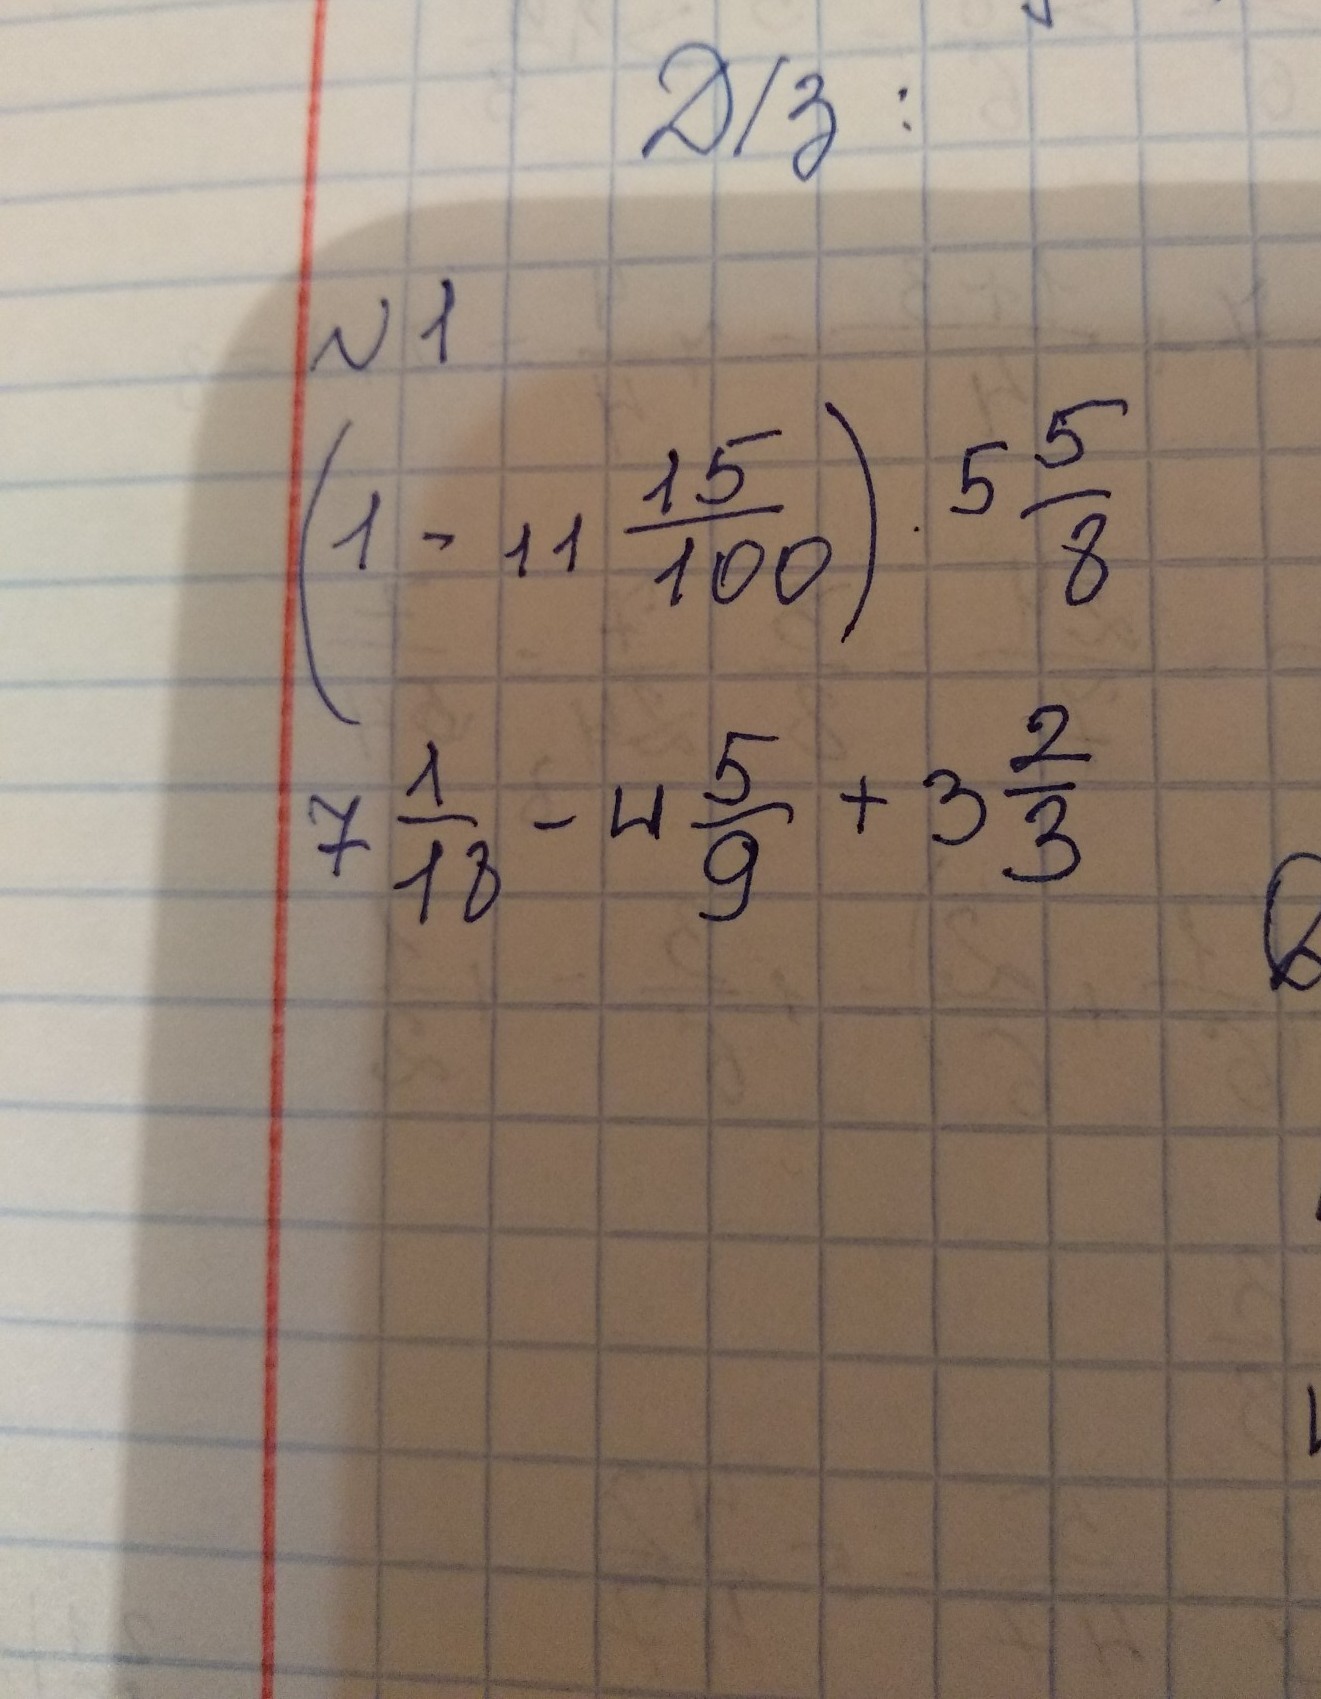 Д/з:
№1
(1 - 11 15/100) · 5 5/8
7 1/18 - 4 5/9 + 3 2/3